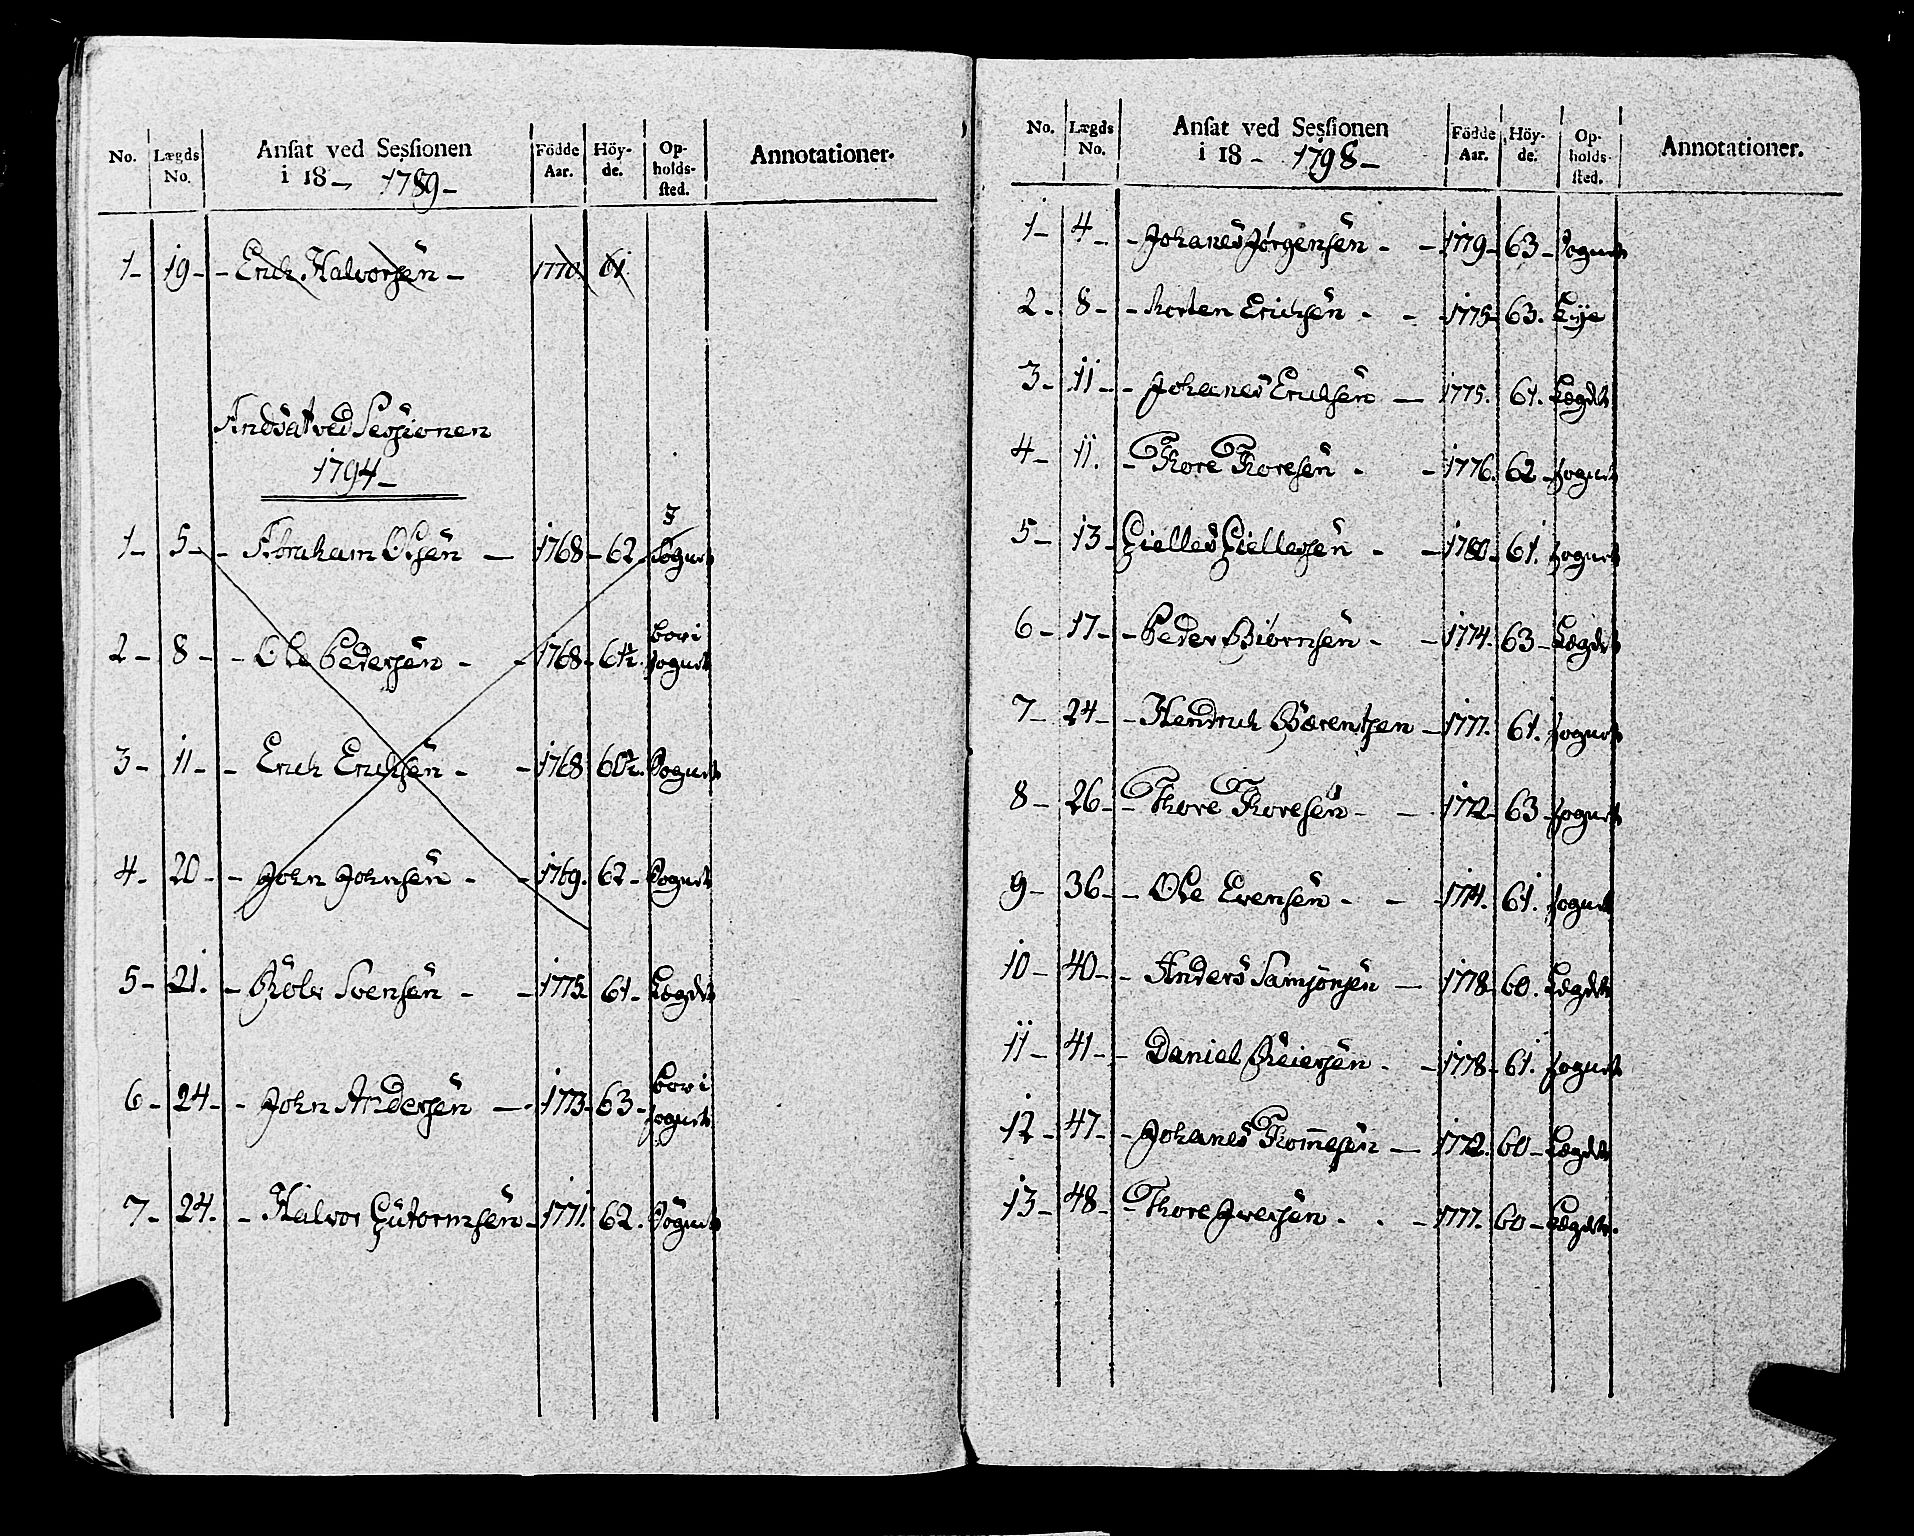 No. Lægds No. Ansat ved Sessionen i 18 - 1789 - Födde Aar. Höy- de. Op- holds- sted. Annotationer.
1 - 19 - - Erich Halvorsen - 1770 61
Andsat ved Sessionen
1794 -
1 - 5 - - Abraham Olsen - 1768 - 62 - Sognet
2 - 8 - - Ole Pedersen - - 1768 - 61½. bor i Sognet
3 - 11 - - Erich Erichsen - - 1768 60½. Sognet
4 - 20 - - John Johnsen - - 1769. 62 - Sognet
5 - 21. - Svensen - - 1775 61 - Lægdet
6 - 24 - - John Andersen - 1773 - 63 - bor i Sognet
7 - 24. - Halvor Gutormsen - 1771. 62. Sognet
No. Lægds No. Ansat ved Sessionen i 18 - 1798 - Födde Aar. Höy- de. Op- holds- sted. Annotationer.
1 - 4 - - Johanes Jørgensen - - 1779 - 63 - Sognet
2 - 8 - - Morten Erichsen - - 1775 - 63.
3 - 11 - - Johanes Erichsen - 1775. 61. Lægdet
4 - 11. - Thore Thoresen - - 1776. 62 - Sognet
5 - 13 - Gielles Giellesen - - 1780 - 61. Sognet
6 - 17 - - Peder Biørnsen - - 1774. 63 - Lægdet
7 - 24 - - Hendrich Bærentsen - 1777. 61. Sognet
8 - 26 - - Thore Thoresen - - 1772 - 63 - Sognet
9 - 36 - - Ole Evensen - - 1774. 61. Sognet
10 - 40 - - Anders Samsonsen - 1778 - 60. Lægdet
11 - 41 - - Daniel Reiersen - - 1778 - 61. Sognet
12 - 47 - - Johanes Thommesen - 1772. 60 - Lægdet
13 - 48 - - Thore Iversen - - 1777. 60 - Lægdet.